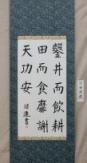 鑿井而飲耕
田而食靡謝
天功安
書